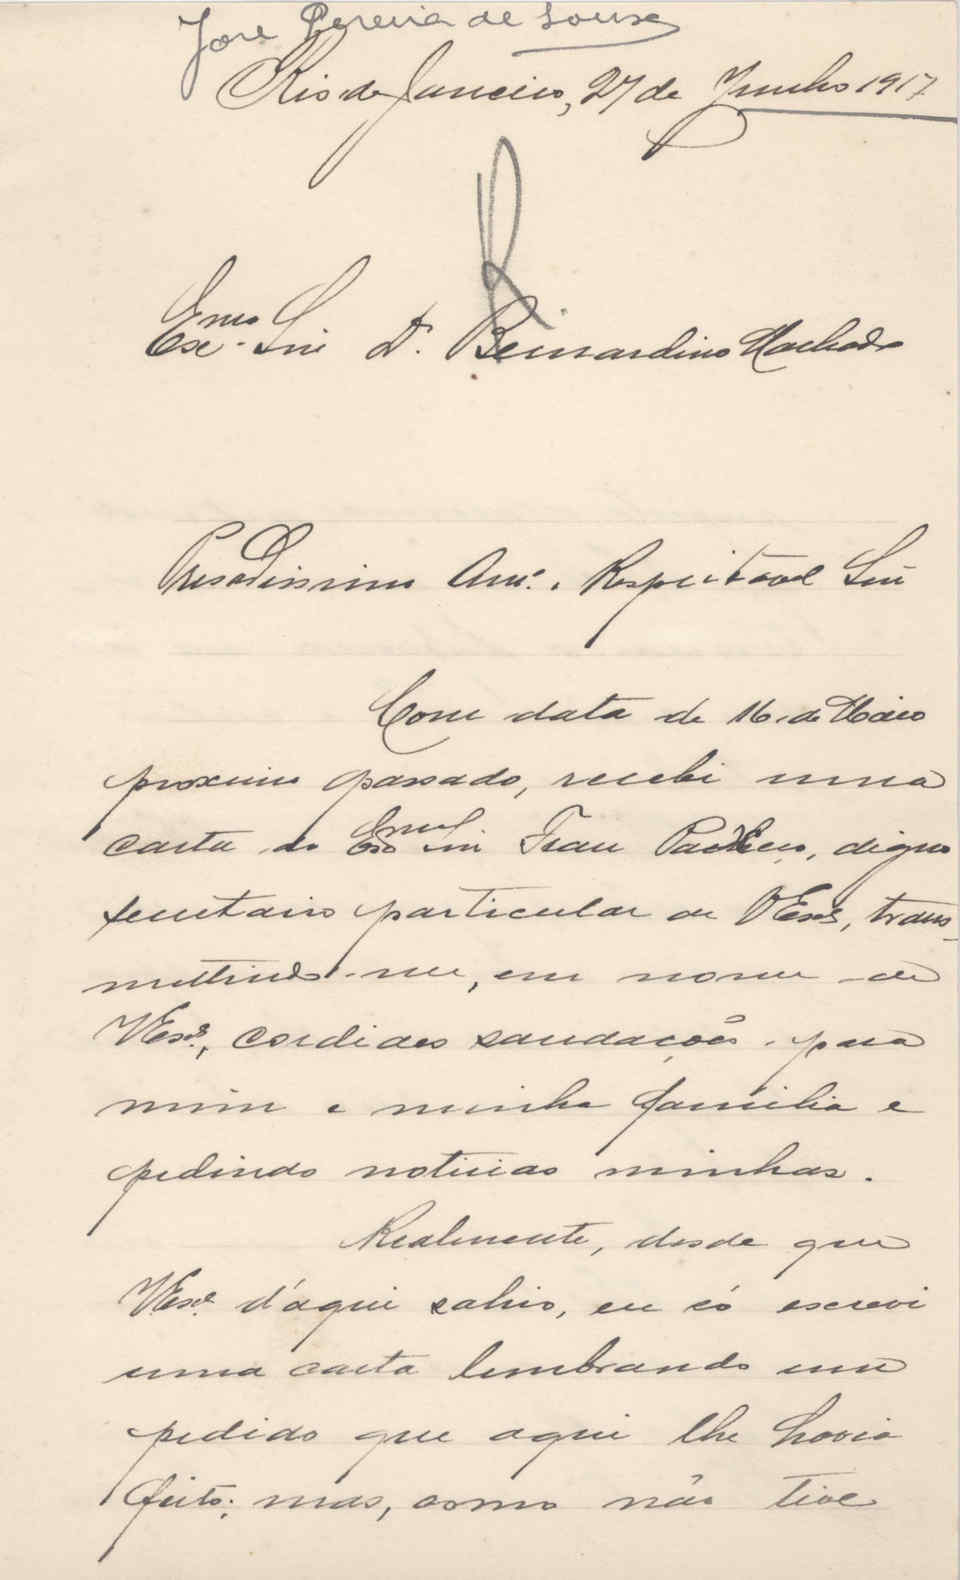 José Pereira de Sousa
Rio de Janeiro, 27 de Junho 1917
R
Exmo. Snr. Dr. Bernardino Machado
Presadissimo Amo. e Respeitavel Snr
Com data de 16 de Maio
proximo passado, recebi uma
carta do Exmo Snr Fran Pacheco, digno
secretario particular de V Exa, trans-
mittindo-me, em nome de
V Exa., cordiaes saudações para
mim e minha familia e
pedindo noticias minhas.
Realmente, desde que
V Exa. d'aqui sahio, eu só escrevi
uma carta lembrando um
pedido que aqui lhe havia
feito; mas, como não tive